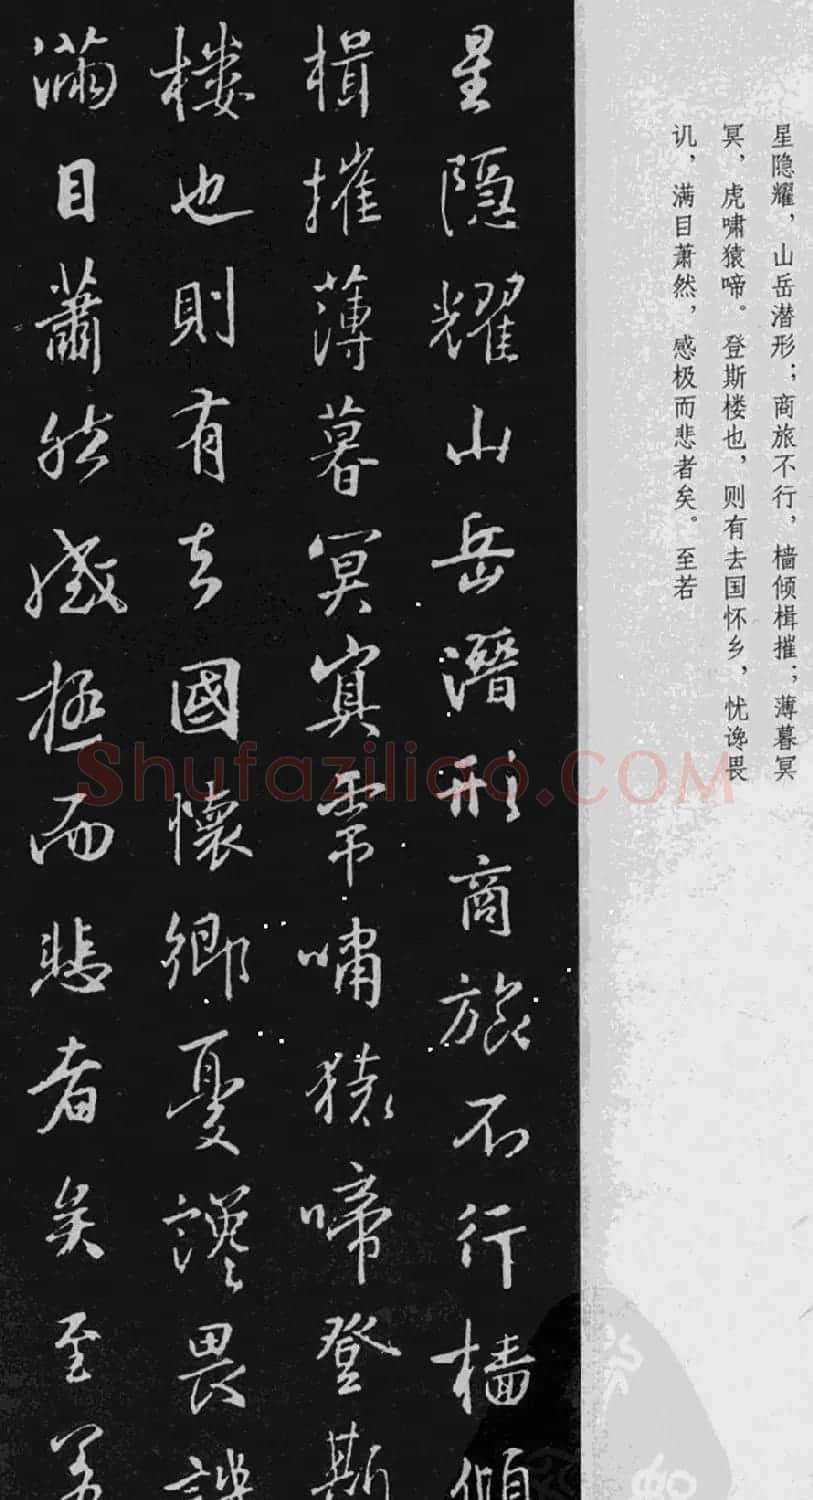 星隐耀，山岳潜形；商旅不行，樯倾楫摧；薄暮冥
冥，虎啸猿啼。登斯楼也，则有去国怀乡，忧谗畏
讥，满目萧然，感极而悲者矣。至若
星隱耀山岳潛形商旅不行檣傾
楫摧薄暮冥冥虎嘯猿啼登斯
樓也則有去國懷鄉憂讒畏譏
滿目蕭然感極而悲者矣至若
Shufaziliao.COM